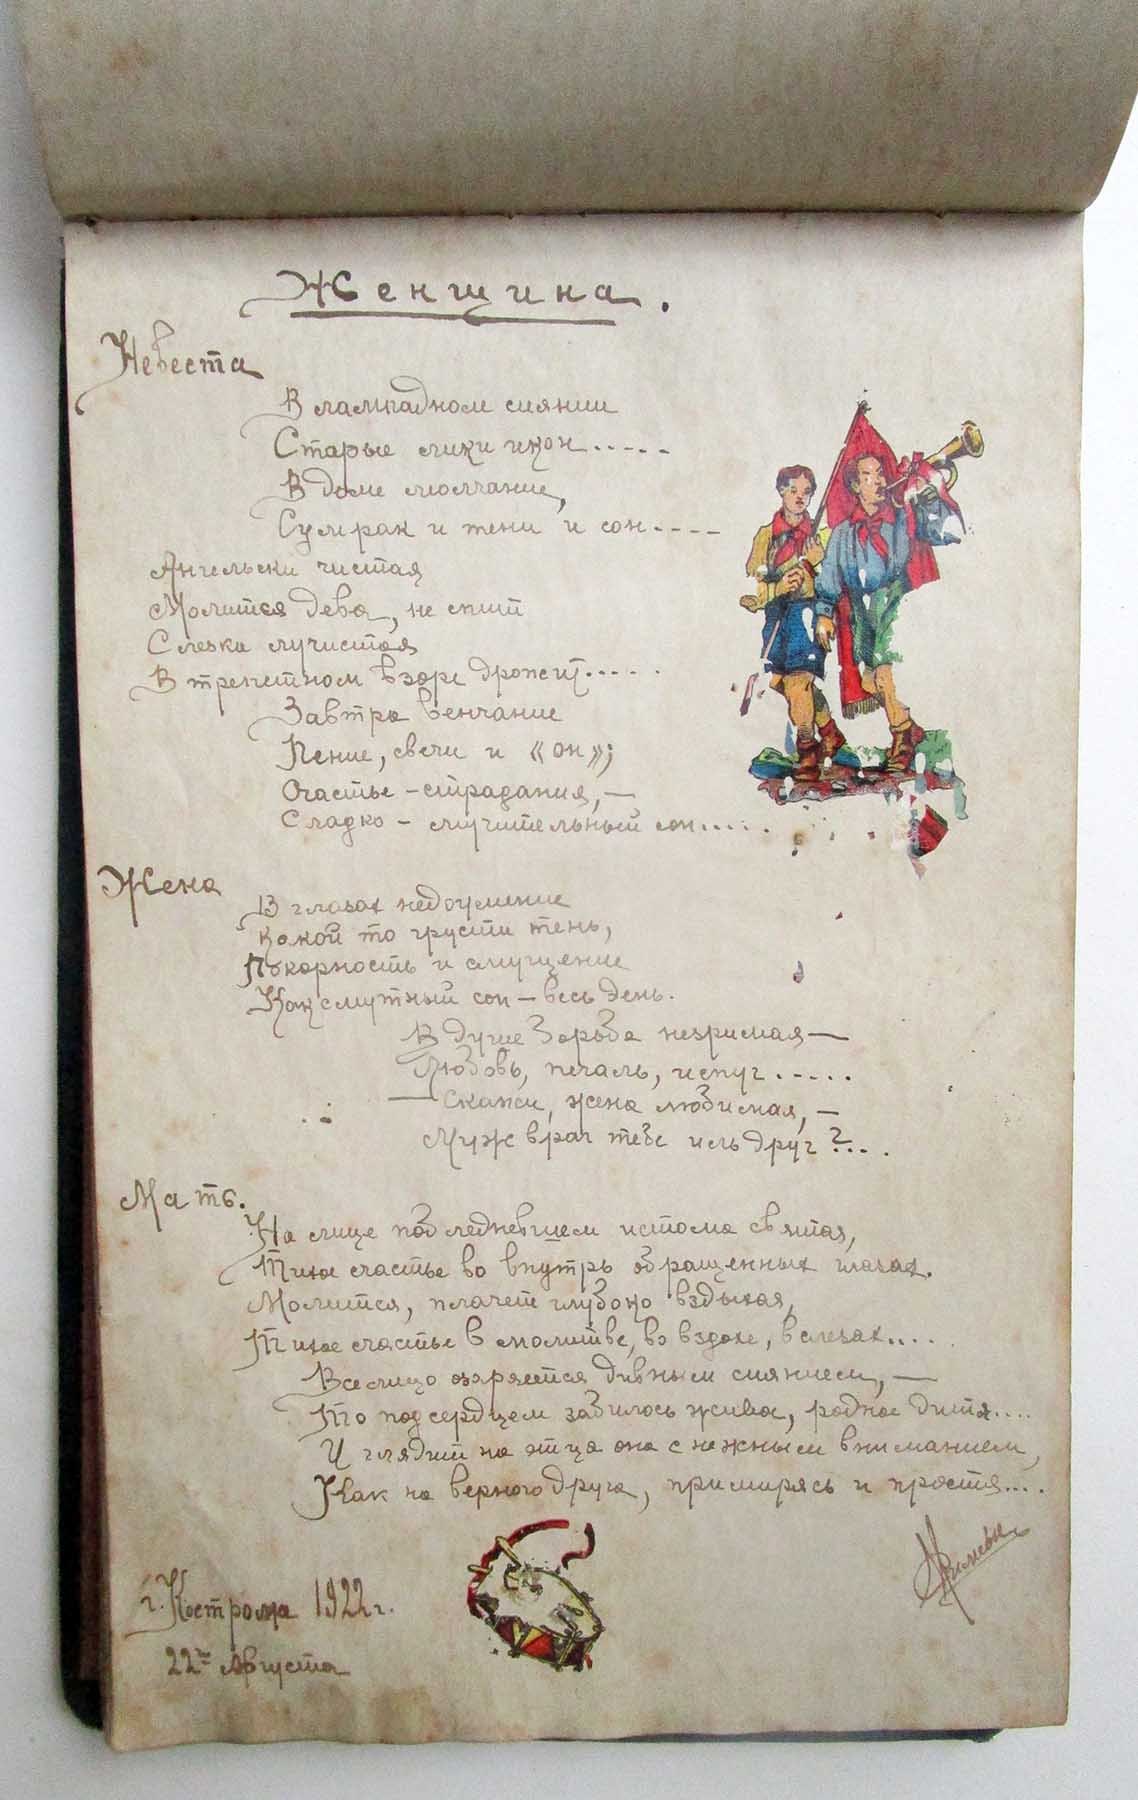 Женщина.
Невеста
В лампадном сиянии
Старые лики икон.....
В доме молчание,
Сумрак и тени и сон....
Ангельски чистая
Молится дева, не спит
Слезка лучистая
В трепетном взоре дрожит.....
Завтра венчание
Пение, свечи и «он»;
Счастье – страдания, —
Сладко – мучительный сон.....
Жена
В глазах недоумение
Какой то грусти тень,
Покорность и смущение
Как смутный сон – весь день.
В душе борьба незримая —
Любовь, печаль, испуг.....
— Скажи, жена любимая, —
Муж враг тебе иль друг?...
Мать.
На лице побледневшем истома святая,
Тихое счастье во внутрь обращенных глазах.
Молится, плачет глубоко вздыхая,
Тихое счастье в молитве, во вздохе, в слезах....
Все лицо озаряется дивным сиянием, —
То под сердцем забилось живое, родное дитя....
И глядит на отца она с нежным вниманием,
Как на верного друга, примирясь и простя....
г. Кострома 1922 г.
22го Августа